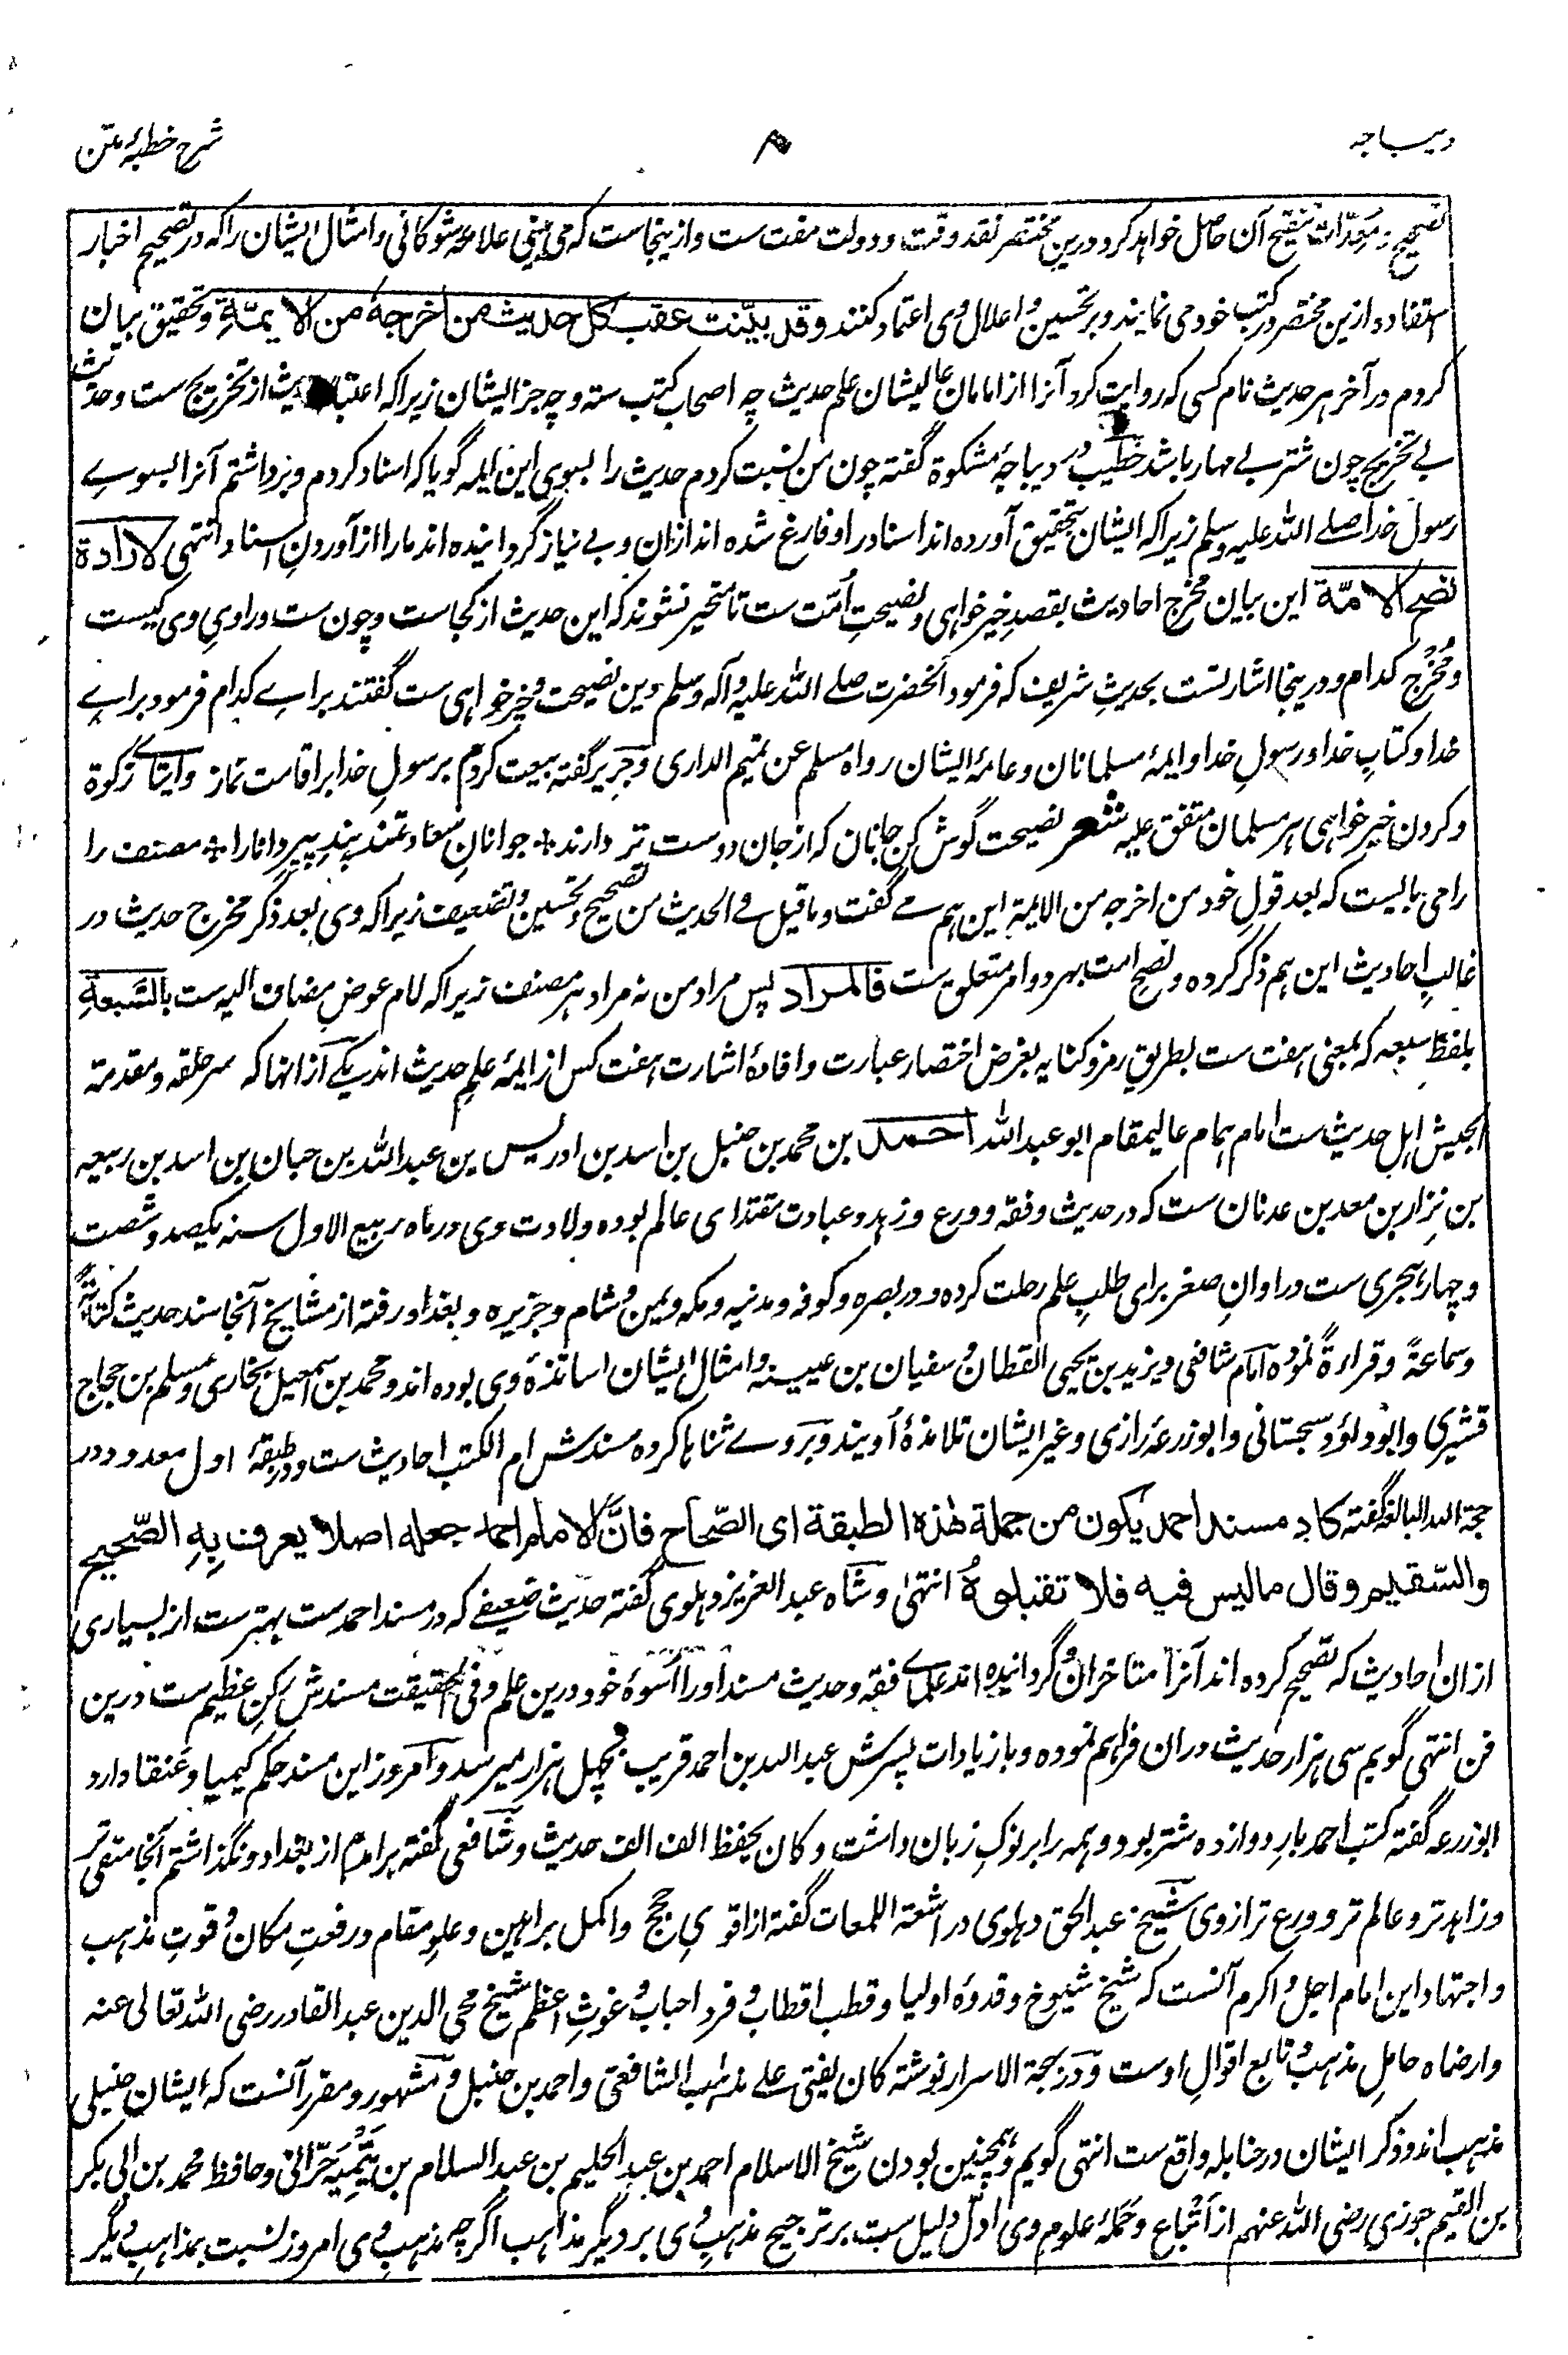 دیباجہ
۸
شرح خطبۂ متن
تصحیح و معدّات تنقیح آن حاصل خواهد کرد درین مختصر نقد وقت و دولت مفت ست و ازینجاست که می بینی علامۀ شوکانی و امثال ایشان را که در تصحیح اخبار
استفاده ازین مختصر در کتب خود می نمایند و بر تحسین و اعلال وی اعتماد کنند وقد بیّنت عقب کل حدیث من اخرجه من الایمّةِ و تحقیق بیان
کردم در آخر هر حدیث نام کسی که روایت کرد آنرا از امامان عالیشان علم حدیث چه اصحاب کتب سته و چه جز ایشان زیرا که اعتبار حدیث از تخریج ست و حدیث
بے تخریج چون شتر بے مهار باشد خطیب در دیباچۂ مشکوة گفته چون من نسبت کردم حدیث را بسوی این ایمه گویا که اسناد کردم و برداشتم آنرا بسوے
رسول خدا صلے الله علیه وسلم زیرا که ایشان بتحقیق آورده اند اسناد را و فارغ شده اند ازان و بے نیاز گردانیده اند ما را از آوردنِ اسناد انتهی لارادة
نصح الامّة این بیان مُخرج احادیث بقصدِ خیرخواهی و نصیحتِ اُمّت ست تا متحیر نشوند که این حدیث از کجاست و چون ست و راویِ وی کیست
و مُخرِج کدام و درینجا اشارتست بحدیثِ شریف که فرمود آنحضرت صلے الله علیه وآله وسلم دین نصیحت و خیرخواهی ست گفتند براے کدام فرمود براے
خدا و کتابِ خدا و رسولِ خدا و ایمۂ مسلمانان و عامۂ ایشان رواه مسلم عن تمیم الداری و جریر گفته بیعت کردم بر رسولِ خدا بر اقامت نماز و ایتاے زکوة
و کردن خیرخواهی هر مسلمان متفق علیه شعر نصیحت گوش کن جانان که از جان دوست تر دارند + جوانانِ سعادتمند پندِ پیرِ دانا را + مصنف را
را می بالیست که بعد قولِ خود من اخرجه من الایمة این هم مے گفت و ما قیل فے الحدیث من تصحیح و تحسین و تضعیف زیرا که وی بعد ذکر مخرج حدیث در
غالبِ احادیث این هم ذکر کرده و نصح امت بهر دو امر متعلق ست فالمراد پس مراد من نه مراد هر مصنف زیرا که لام عوضِ مضاف الیه ست بالسّبعةِ
بلفظِ سبعه که بمعنی هفت ست بطریقِ رمز و کنایه بغرض اختصار عبارت و افادۂ اشارت هفت کس از ایمۂ علمِ حدیث اند یکے از انها که سر حلقه و مقدمة
الجیش اهلِ حدیث ست امام همام عالیمقام ابو عبد الله احمد بن محمد بن حنبل بن اسد بن ادریس بن عبد الله بن حبان بن اسد بن ربیعه
بن نِزار بن معد بن عدنان ست که در حدیث و فقه و ورع و زهد و عبادت مقتدای عالم بوده ولادت وی در ماه ربیع الاول سنه یکصد و شصت
و چهار هجری ست در اوانِ صغر برای طلبِ علم رحلت کرده و در بصره و کوفه و مدنیه و مکه و یمن و شام و جزیره و بغداد رفته از مشایخ آنجا سند حدیث کتابةً
و سماعةً و قراءةً نموده امام شافعی و یزید بن یحیی القطان و سفیان بن عیینه و امثال ایشان اساتذۂ وی بوده اند و محمد بن اسمعیل بخاری و مسلم بن حجاج
قشیری و ابوداؤد سجستانی و ابوزرعۂ رازی و غیر ایشان تلامذۂ اویند و بر وے ثناها کرده مسندش ام الکتب احادیث ست و در طبقۂ اول معدود در
حجة الله البالغه گفته کاد مسند احمد یکون من جملة هٰذه الطبقة ای الصّحاح فانّ الامام احمد جعله اصلا یعرف بِهِ الصّحیح
والسّقیم وقال مالیس فیه فلا تقبلوهُ انتهٰی و شاه عبد العزیز دهلوی گفته حدیث ضعیفے که در مسند احمد ست بهتر ست از بسیاری
از ان احادیث که تصحیح کرده اند آنرا متاخران و گردانیده اند علماے فقه و حدیث مسند او را اُسوۂ خود درین علم و فی الحقیقت مسندش رکنِ عظیم ست درین
فن انتهی گویم سی هزار حدیث دران فراهم نموده و با زیادات پسرش عبد الله بن احمد قریب بچهل هزار میرسد و امروز این مسند حکم کیمیا و عنقا دارد
ابوزرعه گفته کتب احمد بارِ دوازده شتر بود و همه را بر نوکِ زبان داشت و کان یحفظ الف الف حدیث و شافعی گفته برآمدم از بغداد و نگذاشتم آنجا متقی تر
و زاهد تر و عالم تر و ورع تر از وی شیخ عبد الحق دهلوی در اشعة اللمعات گفته از اقویِ حجج و اکمل براهین و علوِ مقام و رفعتِ مکان و قوتِ مذهب
و اجتهاد این امام اجل و اکرم آنست که شیخ شیوخ و قدوۂ اولیا و قطب اقطاب و فرد احباب و غوثِ اعظم شیخ محی الدین عبد القادر رضی الله تعالی عنه
و ارضاه حاملِ مذهب و تابع اقوالِ اوست و در بهجة الاسرار نوشته کان یفتی علے مذهب الشافعی و احمد بن حنبل و مشهور و مقرر آنست که ایشان حنبلی
مذهب اند و ذکر ایشان در حنابله واقع ست انتهی گویم و همچنین بودن شیخ الاسلام احمد بن عبد الحلیم بن عبد السلام بن تیمیه حرّانی و حافظ محمد بن ابی بکر
بن القیم جوزی رضی الله عنهم از اَتباع و حَمَلۂ علومِ وی ادلّ دلیل ست بر ترجیح مذهبِ وی بر دیگر مذاهب اگر چه مذهبِ وی امروز نسبت بمذاهبِ دیگر